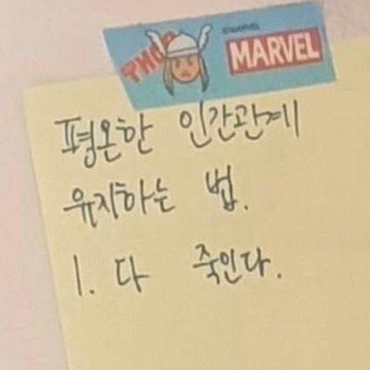 THOR
©MARVEL
MARVEL
평온한 인간관계
유지하는 법.
1. 다 죽인다.